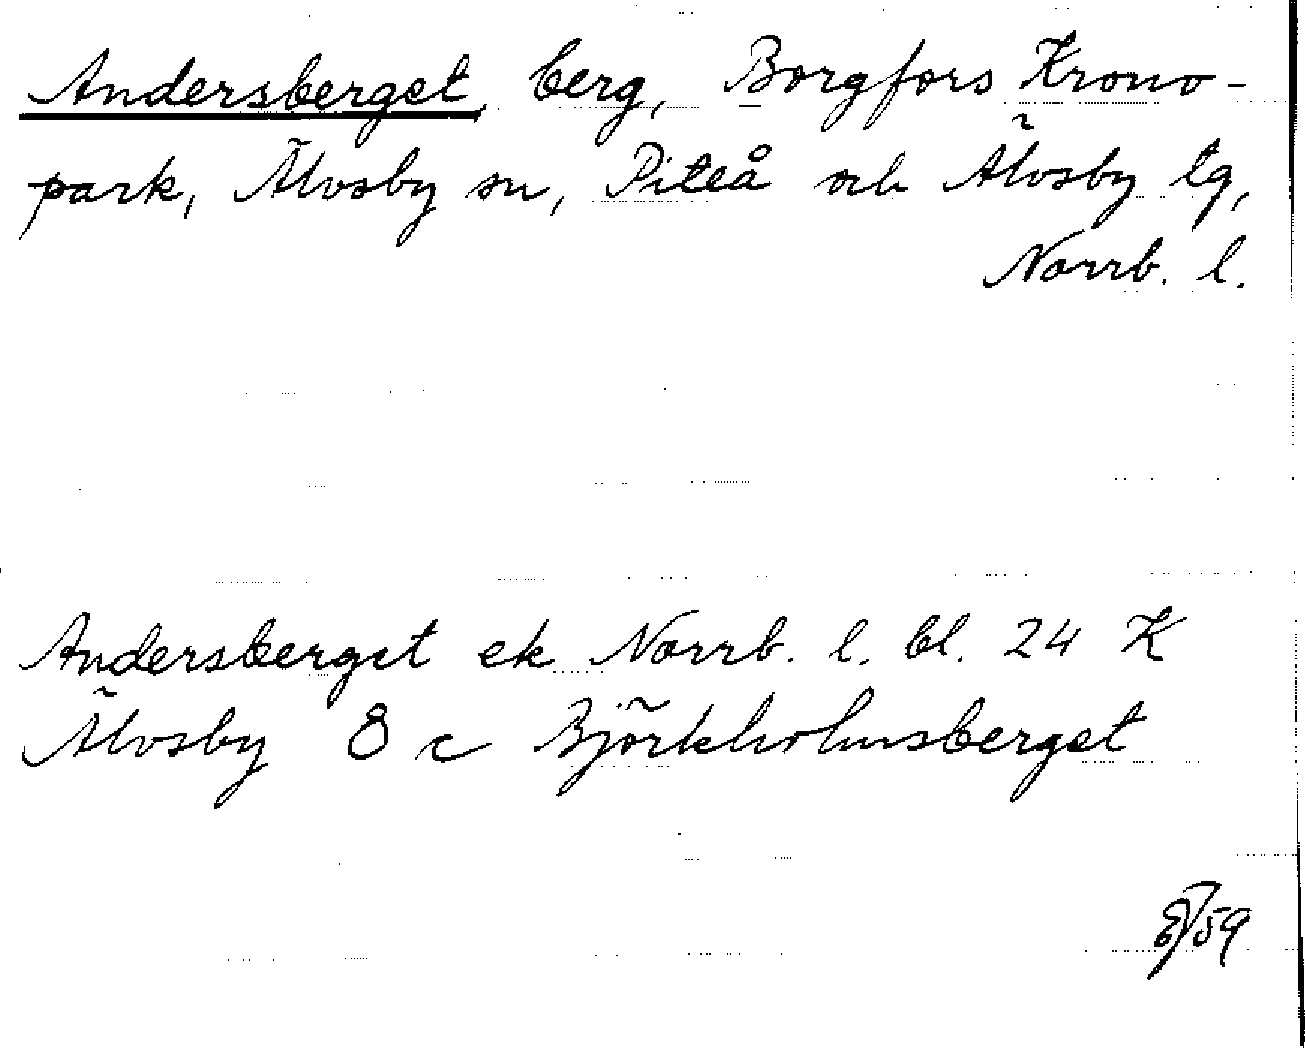 Andersberget, berg, Borgfors Krono-
park, Älvsby sn, Piteå och Älvsby tg,
Norrb. l.
Andersberget ek Norrb. l. bl. 24 K
Älvsby 8 c Björkholmsberget
59